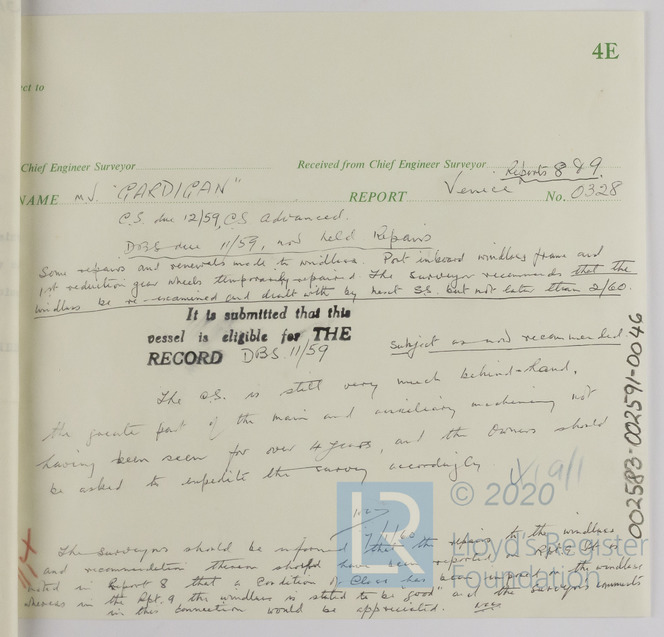 4E
ect to
Chief Engineer Surveyor
Received from Chief Engineer Surveyor
Reports 8 & 9.
NAME M.V. "CARDIGAN"
REPORT Venice No. 0328
C.S. due 12/59, C.S. advanced.
DBS due 11/59, now held Repairs
Some repairs and renewals made to windlass. Port inboard windlass frame and
1st reduction gear wheels temporarily repaired. The surveyor recommends that the
windlass be re-examined and dealt with by next S.S. but not later than 2/60.
It is submitted that this
vessel is eligible for THE
RECORD DBS 11/59
subject as now recommended.
The C.S. is still very much behind-hand,
the greater part of the main and auxiliary machinery not
having been seen for over 4 years, and the Owners should
be asked to expedite the survey accordingly.
19/1
© 2020
LR
Lloyd's Register
Foundation
7/1/60
The surveyors should be informed that the repairs to the windlass
and recommendation thereon should have been reported Rpt. 9
noted in Report 8 that a Condition of Class has been imposed in the windlass
whereas in the Rpt. 9 the windlass is stated to be "good" and the surveyors comments
in this connection would be appreciated.
002583-002591-0046